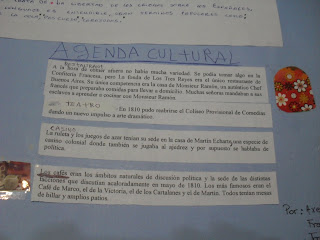 AGENDA CULTURAL
RESTAURANT
A la hora de comer afuera no había mucha variedad. Se podía tomar algo en la
Confitería Francesa, pero La Fonda de Los Tres Reyes era el único restaurante de
Buenos Aires. Su única competencia era la casa de Monsieur Ramón, un auténtico Chef
Francés que preparaba comidas para llevar a domicilio. Muchas señoras mandaban a sus
esclavos a aprender a cocinar con Monsieur Ramón.
TEATRO
- En 1810 pudo reabrirse el Coliseo Provisional de Comedias
dando un nuevo impulso a arte dramático.
CASINO
La ruleta y los juegos de azar tenían su sede en la casa de Martín Echarte, una especie de
casino colonial donde también se jugaba al ajedrez y por supuesto se hablaba de
política.
Los cafés eran los ámbitos naturales de discusión política y la sede de las distintas
facciones que discutían acaloradamente en mayo de 1810. Los más famosos eran el
Café de Marco, el de la Victoria, el de los Catalanes y el de Martín. Todos tenían mesas
de billar y amplios patios.
Por: